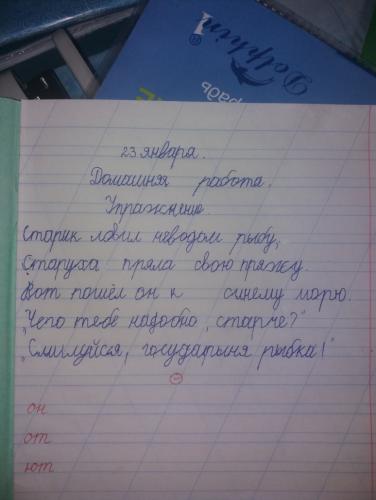 Dolphin
®
23 января.
Домашняя работа.
Упражнение.
Старик ловил неводом рыбу,
Старуха пряла свою пряжу.
Вот пошёл он к синему морю.
„Чего тебе надобно, старче?"
„Смилуйся, государыня рыбка!"
он
от
ют